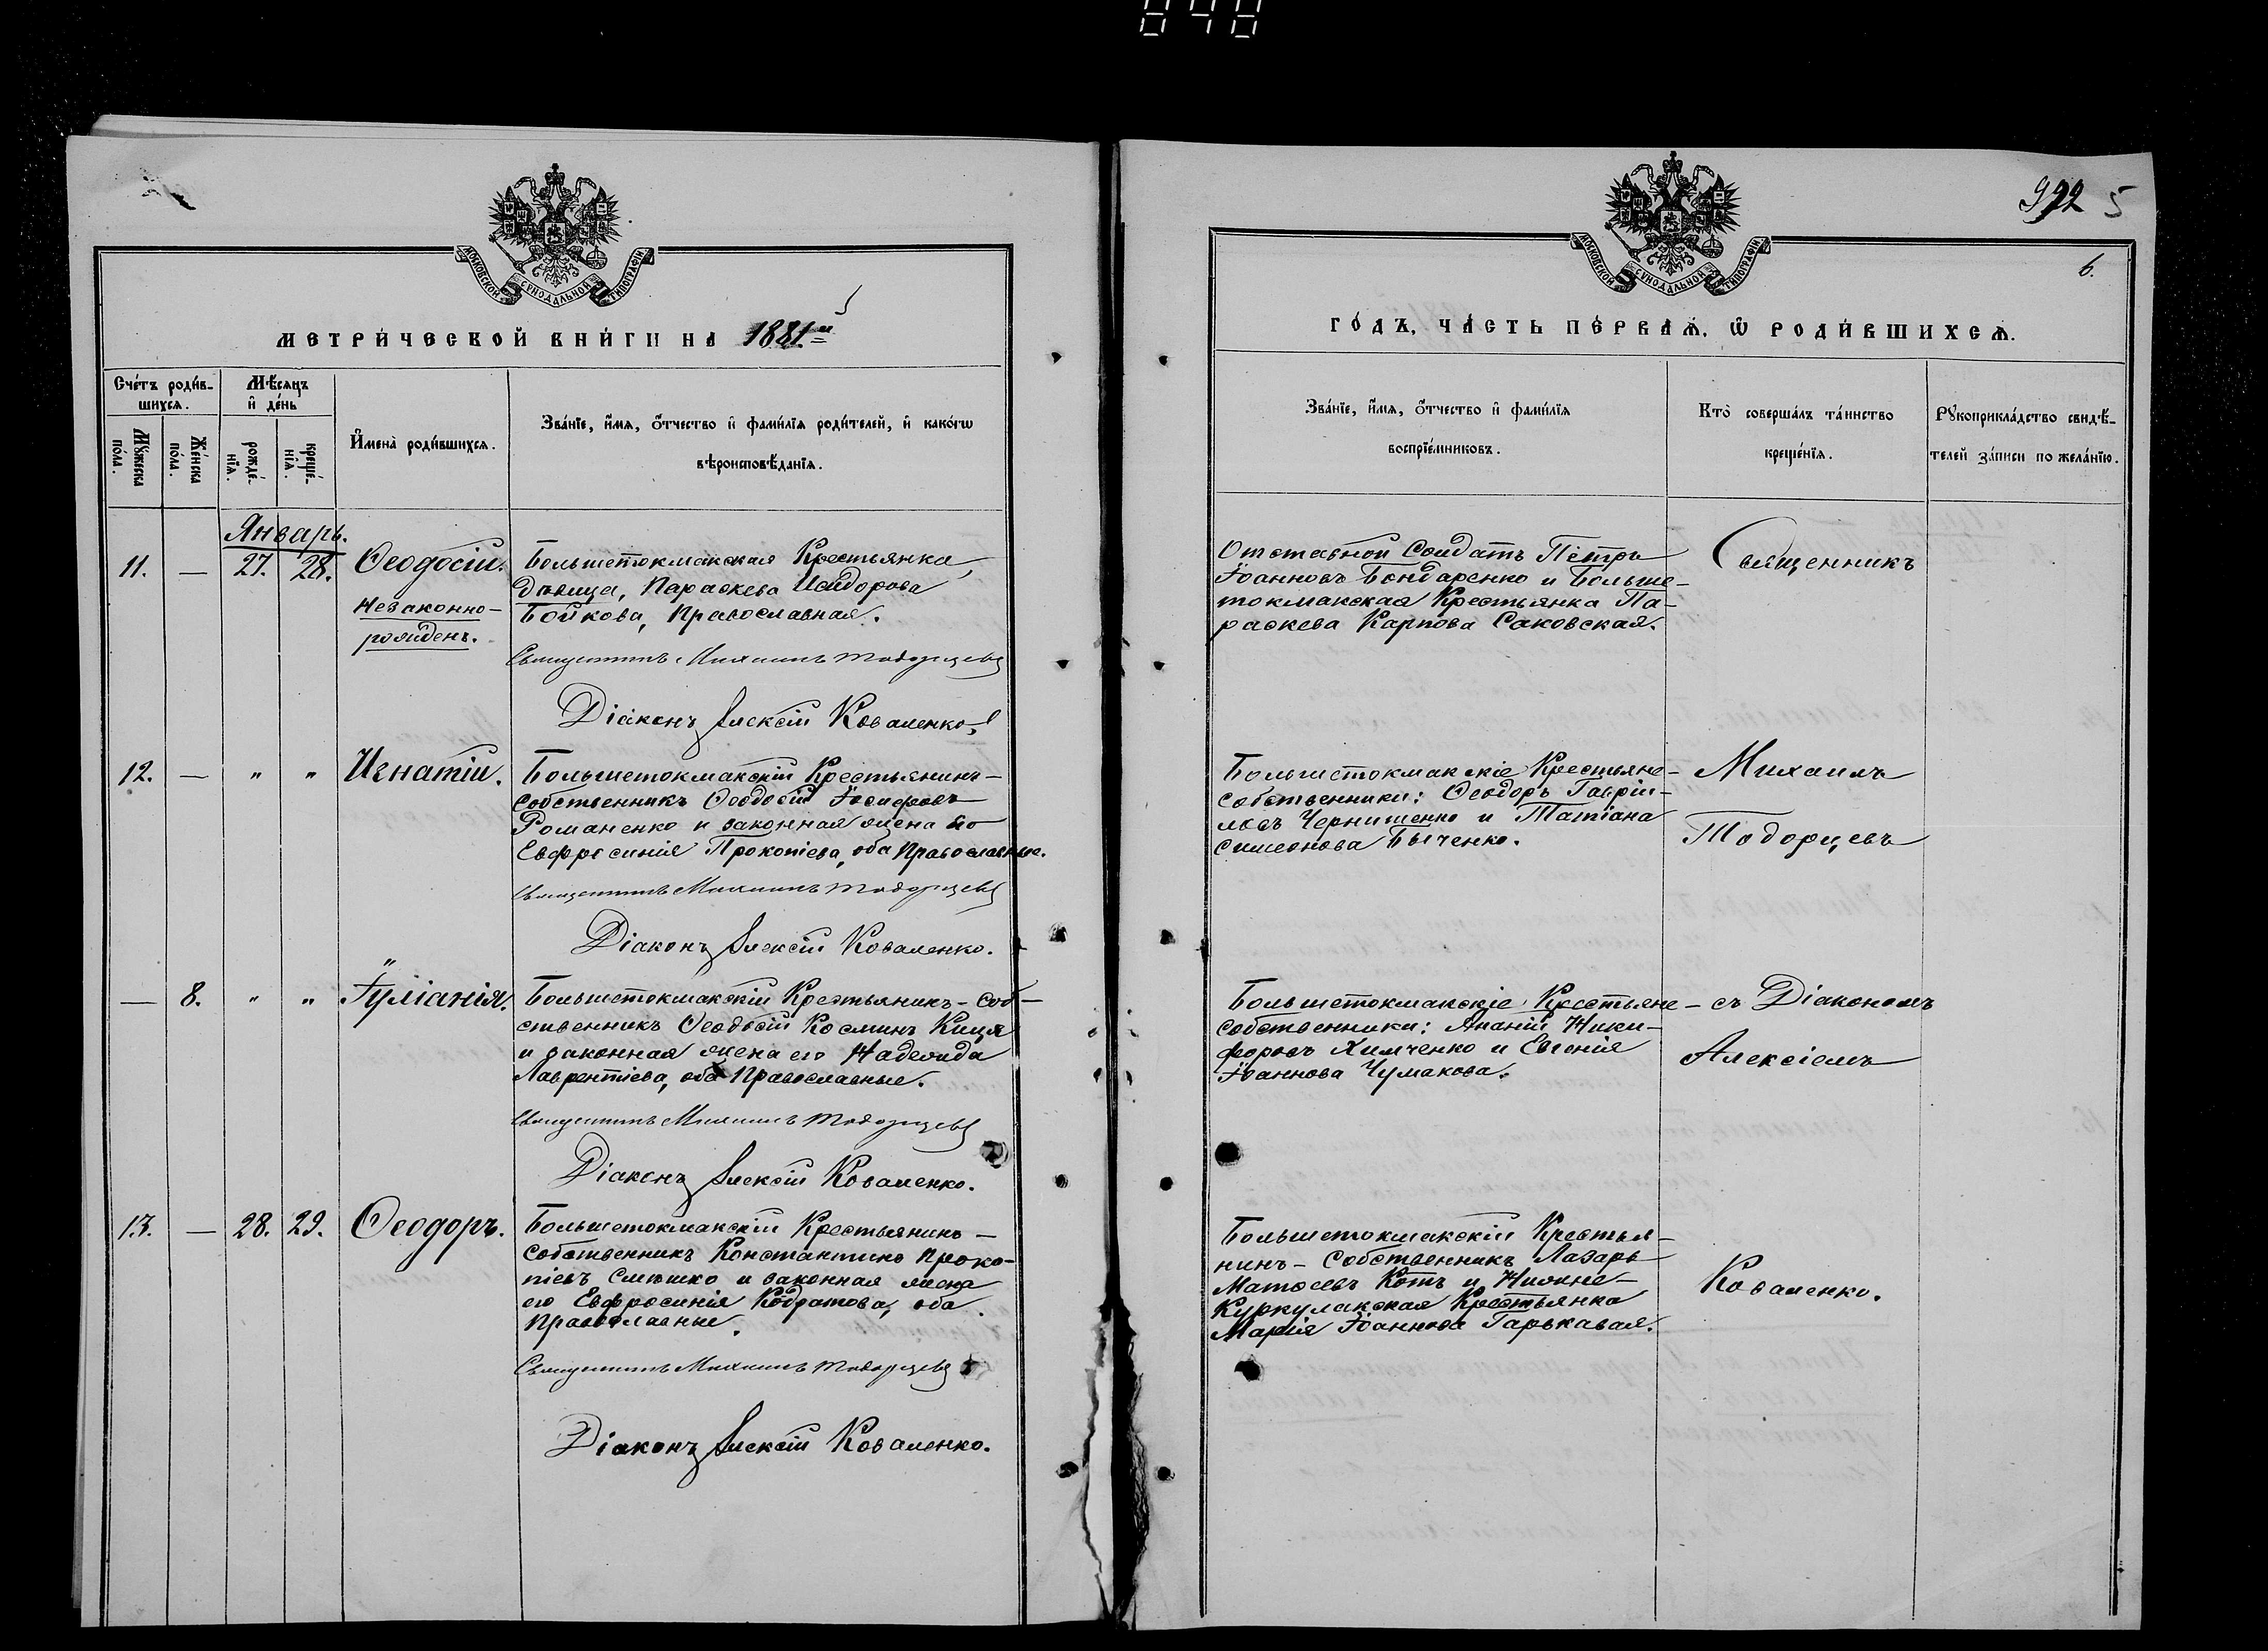 848
МОСКОВСКОЙ СѴНОДАЛЬНОЙ ТИПОГРАФІИ
МЕТРИ́ЧЕСКОЙ КНИ́ГИ НА 1881.й
Сче́тъ роди́в-
шихся.
Мѣ́сяцъ
и҆ де́нь
Мꙋ́жеска
по́ла.
Же́нска
по́ла.
рожде́-
нїя.
креще́-
нїя.
И҆мена̀ роди́вшихся.
Зва́нїе, и҆́мя, ѻ҆́тчество и҆ фами́лїя роди́телей, и҆ како́гѡ
вѣроисповѣ́данїя.
Январь.
11. — 27. 28. Ѳеодосій.
Незаконно-
рожденъ.
Большетокмакская Крестьянка,
дѣвица, Параскева Исидорова
Бойкова, Православная.
Священникъ Михаилъ Тодорцевъ
Діаконъ Алексій Коваленко.
12. — " " Игнатій.
Большетокмакскій Крестьянинъ-
собственникъ Ѳеодосій Іосифовъ
Романенко и законная жена его
Евфросинія Прокопіева, оба Православные.
Священникъ Михаилъ Тодорцевъ
Діаконъ Алексій Коваленко.
— 8. " " Іуліанія.
Большетокмакскій Крестьянинъ-соб-
ственникъ Ѳеодосій Косминъ Кица
и законная жена его Надежда
Лаврентіева, оба Православные.
Священникъ Михаилъ Тодорцевъ
Діаконъ Алексій Коваленко.
13. — 28. 29. Ѳеодоръ.
Большетокмакскій Крестьянинъ-
собственникъ Константинъ Проко-
піевъ Смѣшко и законная жена
его Евфросинія Кодратова, оба
Православные.
Священникъ Михаилъ Тодорцевъ
Діаконъ Алексій Коваленко.
5
6.
МОСКОВСКОЙ СѴНОДАЛЬНОЙ ТИПОГРАФІИ
ГО́ДЪ, ЧА́СТЬ ПЕ́РВАѦ, Ѡ҆ РОДИ́ВШИХСѦ.
Зва́нїе, и҆́мя, ѻ҆́тчество и҆ фами́лїя
воспрїе́мниковъ.
Кто̀ соверша́лъ та́инство
креще́нїя.
Рꙋкоприкла́дство свидѣ́-
телей за́писи по жела́нїю.
Отставной Солдатъ Петръ
Іоанновъ Бондаренко и Больше-
токмакская Крестьянка Па-
раскева Карпова Саковская.
Священникъ
Большетокмакскіе Крестьяне-
собственники: Ѳеодоръ Гаврiи-
ловъ Чернишенко и Татіана
Симеонова Быченко.
Михаилъ
Тодорцевъ
Большетокмакскіе Крестьяне-
собственники: Ананій Ники-
форовъ Химченко и Евгенія
Іоаннова Чумакова.
съ Діакономъ
Алексіемъ
Большетокмакскій Крестья-
нинъ-Собственникъ Лазарь
Матѳеевъ Котъ и Нижне-
Куркулакская Крестьянка
Марія Іоаннова Гарькавая.
Коваленко.